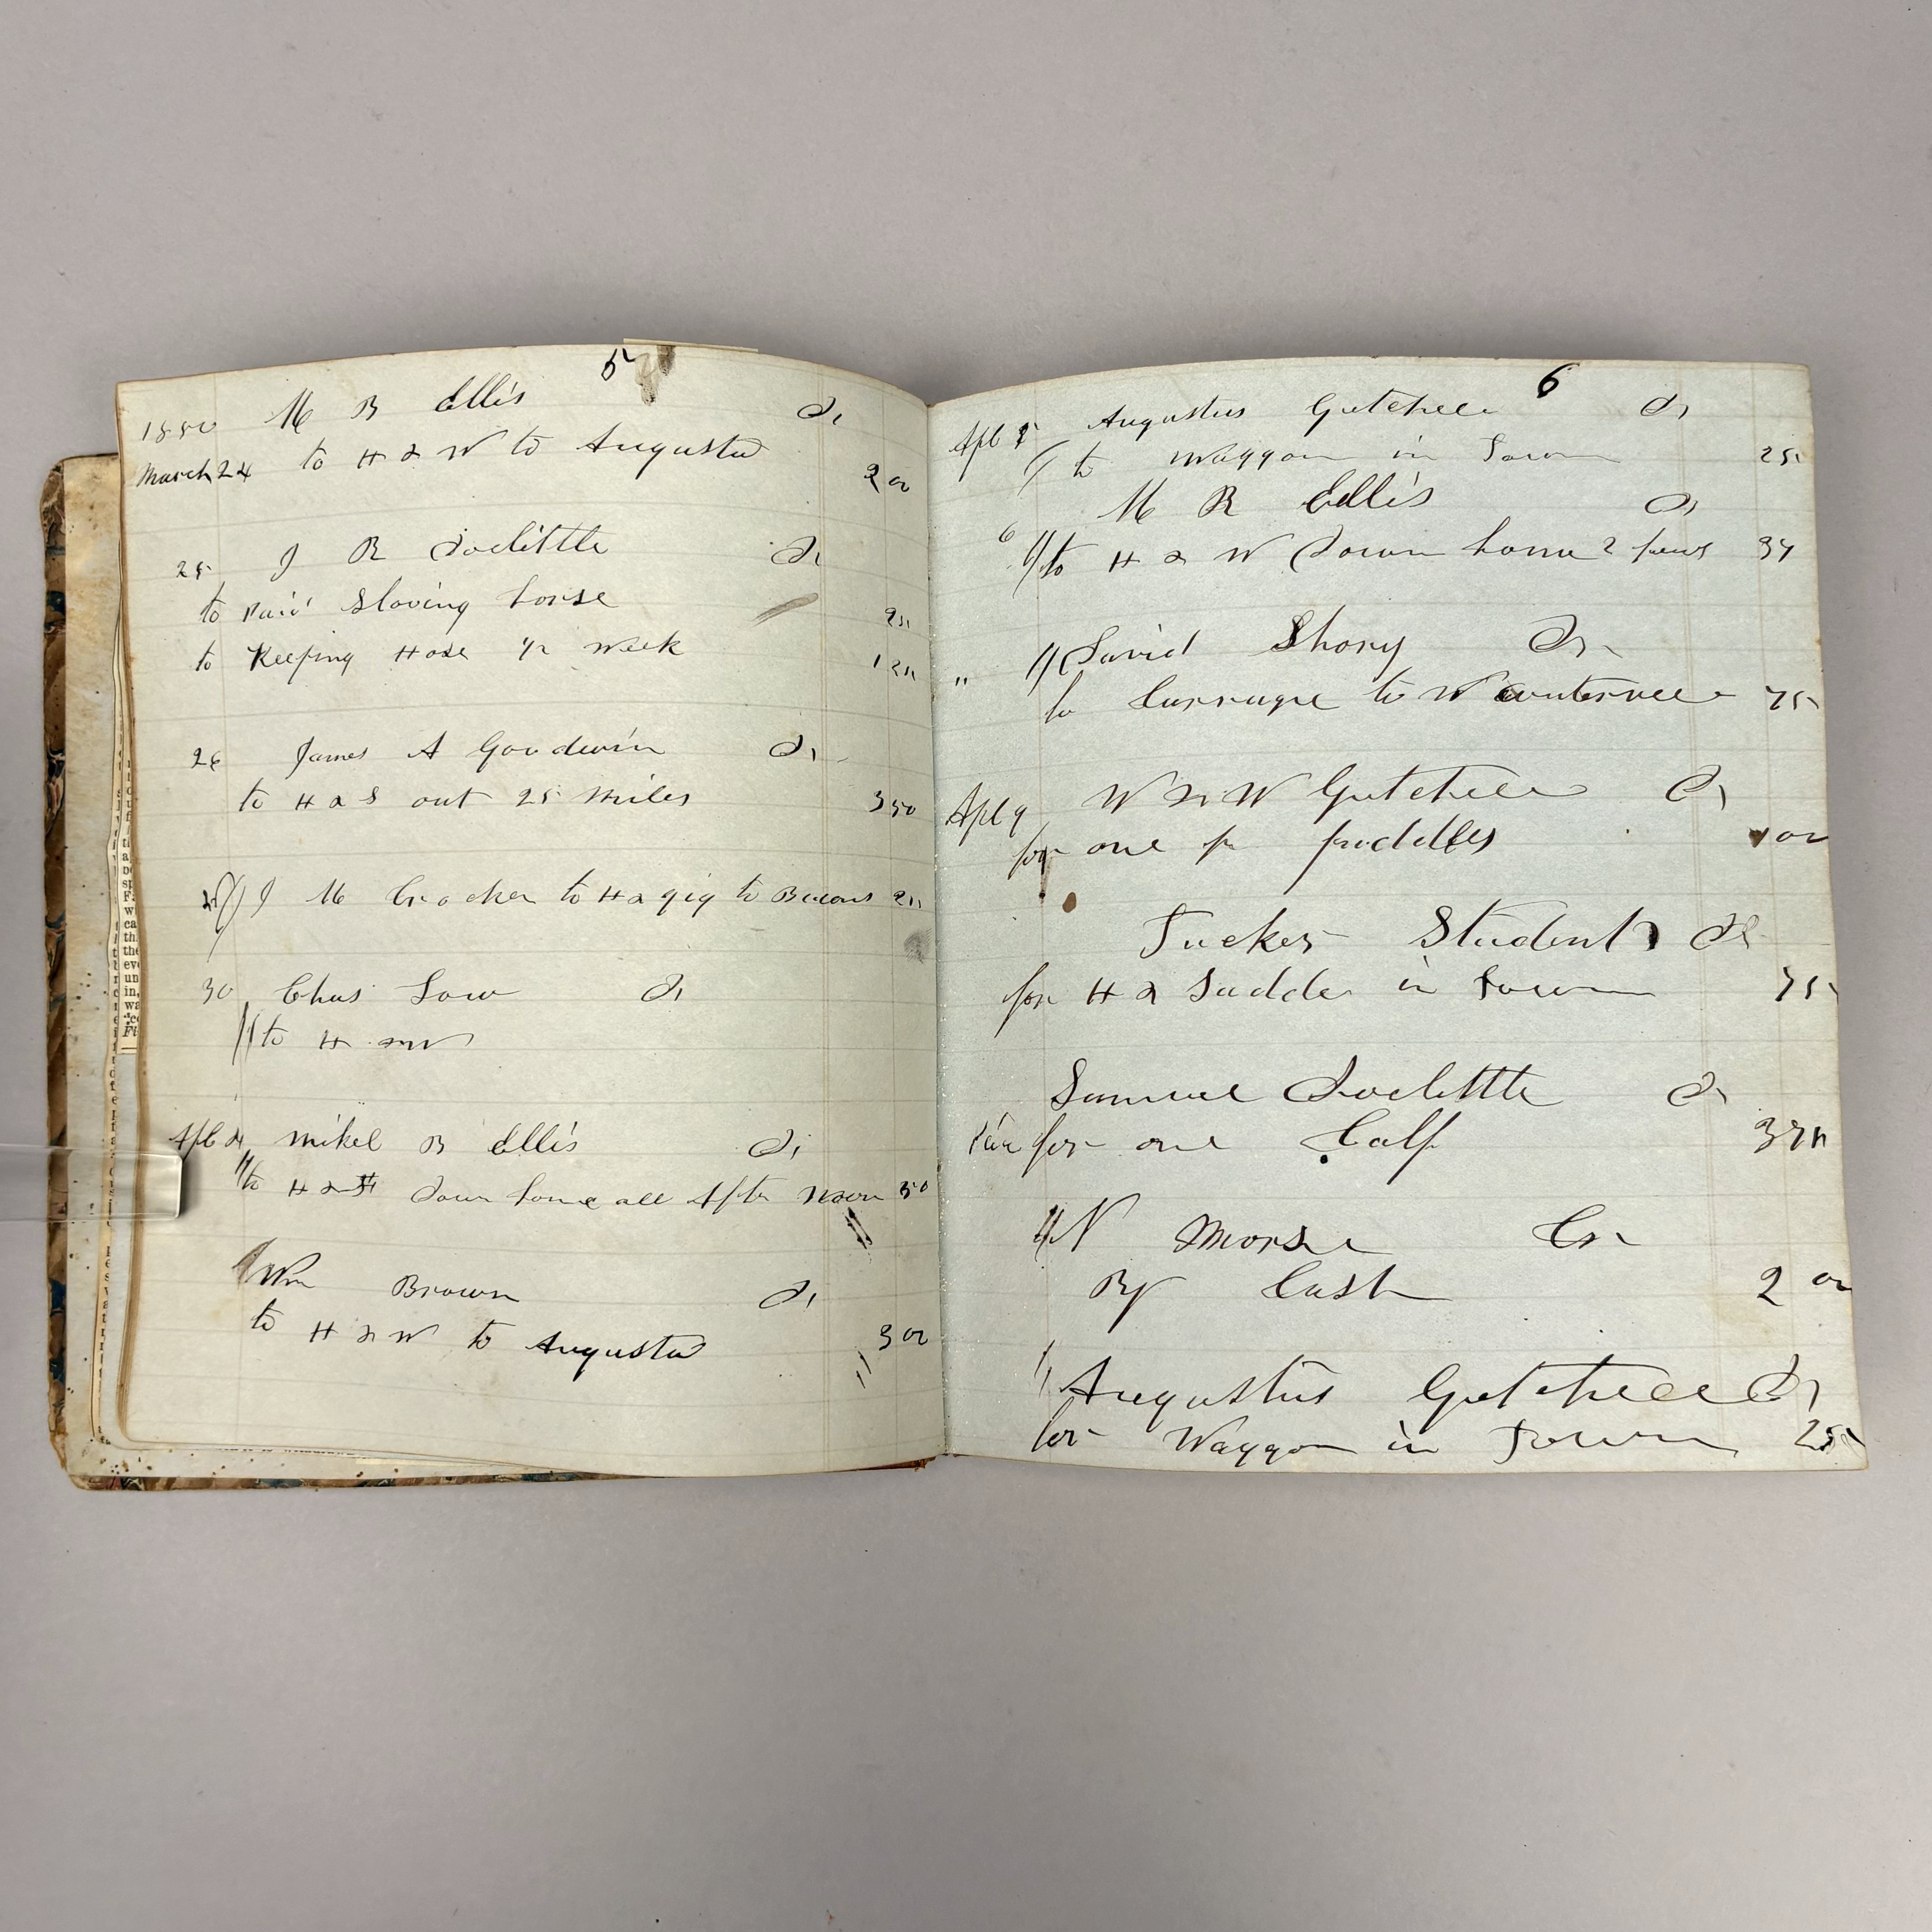 5
1850 M B Ellis Dr
March 24 to H & W to Augusta 2 00
25 J R Doelittle Dr
to Paid Shoving horse 25
to Keeping Hose 1/2 week 1 25
26 James A Goodwin Dr
to H & S out 25 miles 3 50
J M Crocker to H & gig to
30 Chas Low Dr
to H & W
Apl 4 Mikel B Ellis Dr
to H & Down home all After Noon 50
Wm Brown Dr
to H & W to Augusta 3 00
6
Apl 5 Augustus Getchell Dr
to Waggon in Town 25
M B Ellis Dr
6 to H & W Down home 2 37
" David Shory Dr
to Carrage to 75
Apl 9 W & W Getchell Dr
for one pr 00
Tucker Student Dr
for H & Saddle in Town 75
Samuel Doelittle Dr
for one Calf
N Morse Cr
By Cash 2 00
Augustus Getchell Dr
for Waggon in Town 25